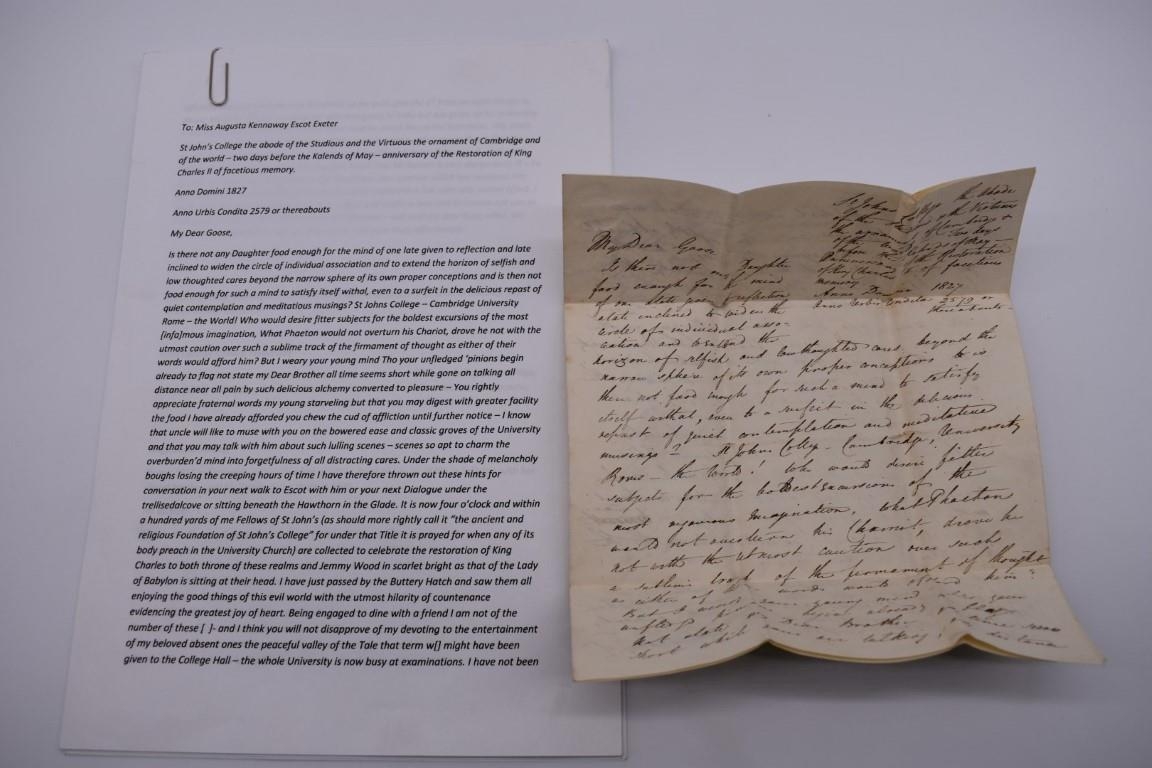 To: Miss Augusta Kennaway Escot Exeter
St John's College the abode of the Studious and the Virtuous the ornament of Cambridge and
of the world – two days before the Kalends of May – anniversary of the Restoration of King
Charles II of facetious memory.
Anno Domini 1827
Anno Urbis Condita 2579 or thereabouts
My Dear Goose,
Is there not any Daughter food enough for the mind of one late given to reflection and late
inclined to widen the circle of individual association and to extend the horizon of selfish and
low thoughted cares beyond the narrow sphere of its own proper conceptions and is then not
food enough for such a mind to satisfy itself withal, even to a surfeit in the delicious repast of
quiet contemplation and meditative musings? St Johns College – Cambridge University
Rome – the World! Who would desire fitter subjects for the boldest excursions of the most
[infa]mous imagination, What Phaeton would not overturn his Chariot, drove he not with the
utmost caution over such a sublime track of the firmament of thought as either of their
words would afford him? But I weary your young mind Tho your unfledged 'pinions begin
already to flag not state my Dear Brother all time seems short while gone on talking all
distance near all pain by such delicious alchemy converted to pleasure – You rightly
appreciate fraternal words my young starveling but that you may digest with greater facility
the food I have already afforded you chew the cud of affliction until further notice – I know
that uncle will like to muse with you on the bowered ease and classic groves of the University
and that you may talk with him about such lulling scenes – scenes so apt to charm the
overburden'd mind into forgetfulness of all distracting cares. Under the shade of melancholy
boughs losing the creeping hours of time I have therefore thrown out these hints for
conversation in your next walk to Escot with him or your next Dialogue under the
trellisedalcove or sitting beneath the Hawthorn in the Glade. It is now four o'clock and within
a hundred yards of me Fellows of St John's (as should more rightly call it "the ancient and
religious Foundation of St John's College" for under that Title it is prayed for when any of its
body preach in the University Church) are collected to celebrate the restoration of King
Charles to both throne of these realms and Jemmy Wood in scarlet bright as that of the Lady
of Babylon is sitting at their head. I have just passed by the Buttery Hatch and saw them all
enjoying the good things of this evil world with the utmost hilarity of countenance
evidencing the greatest joy of heart. Being engaged to dine with a friend I am not of the
number of these [ ]- and I think you will not disapprove of my devoting to the entertainment
of my beloved absent ones the peaceful valley of the Tale that term w[] might have been
given to the College Hall – the whole University is now busy at examinations. I have not been
St Johns the Abode
of the & the Virtuous
the ornament of Cambridge &
of the two days
before the Kalends of May
Restoration
of King Charles of facetious
memory
Anno 1827
Anno Urbis Condita 2579 or
thereabouts
My Dear Goose
Is there not any Daughter
food enough for mind
of one reflection
inclined to widen the
circle of individual asso-
ciation and to extend the
horizon of selfish and low thoughted cares beyond the
narrow sphere of its own proper conceptions & is
then not food enough for such a mind to satisfy
itself withal, even to a surfeit in the delicious
repast of quiet contemplation and meditative
musings? St Johns College – Cambridge University
Rome – the World! Who would desire fitter
subjects for the boldest excursions of the
most imagination, what Phaeton
would not overturn his Chariot, drove he
not with the utmost caution over such
a sublime track of the firmament of thought
as either of words would afford him?
But I young mind your
Dear Brother
short